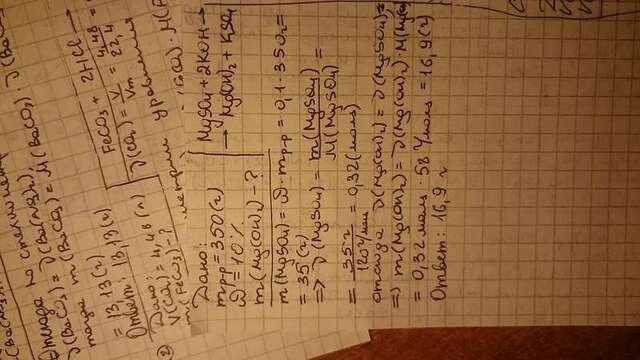 Отсюда по стехиометрии
ν(BaCO₃) = ν(Ba(NO₃)₂),
тогда m(BaCO₃) = M(BaCO₃) · ν(BaCO
= 13,13 (г)
Ответ: 13,13 (г)
②
Дано:
V(CO₂) = 4,48 (л)
m(FeCO₃) - ?
FeCO₃ + 2HCl →
ν(CO₂) = V/Vm = 4,48/22,4 =
уравнения
Дано:
mр-р = 350 (г)
ω = 10%
m(Mg(OH)₂) - ?
MgSO₄ + 2KOH →
→ Mg(OH)₂ + K₂SO₄
m(MgSO₄) = ω · mр-р = 0,1 · 350 =
= 35 (г)
=> ν(MgSO₄) = m(MgSO₄)/M(MgSO₄) =
= 35 г/120 г/моль = 0,32 (моль)
отсюда ν(Mg(OH)₂) = ν(MgSO₄) =
=> m(Mg(OH)₂) = ν(Mg(OH)₂) · M(Mg(OH
= 0,32 моль · 58 г/моль = 16,9 (г)
Ответ: 16,9 г